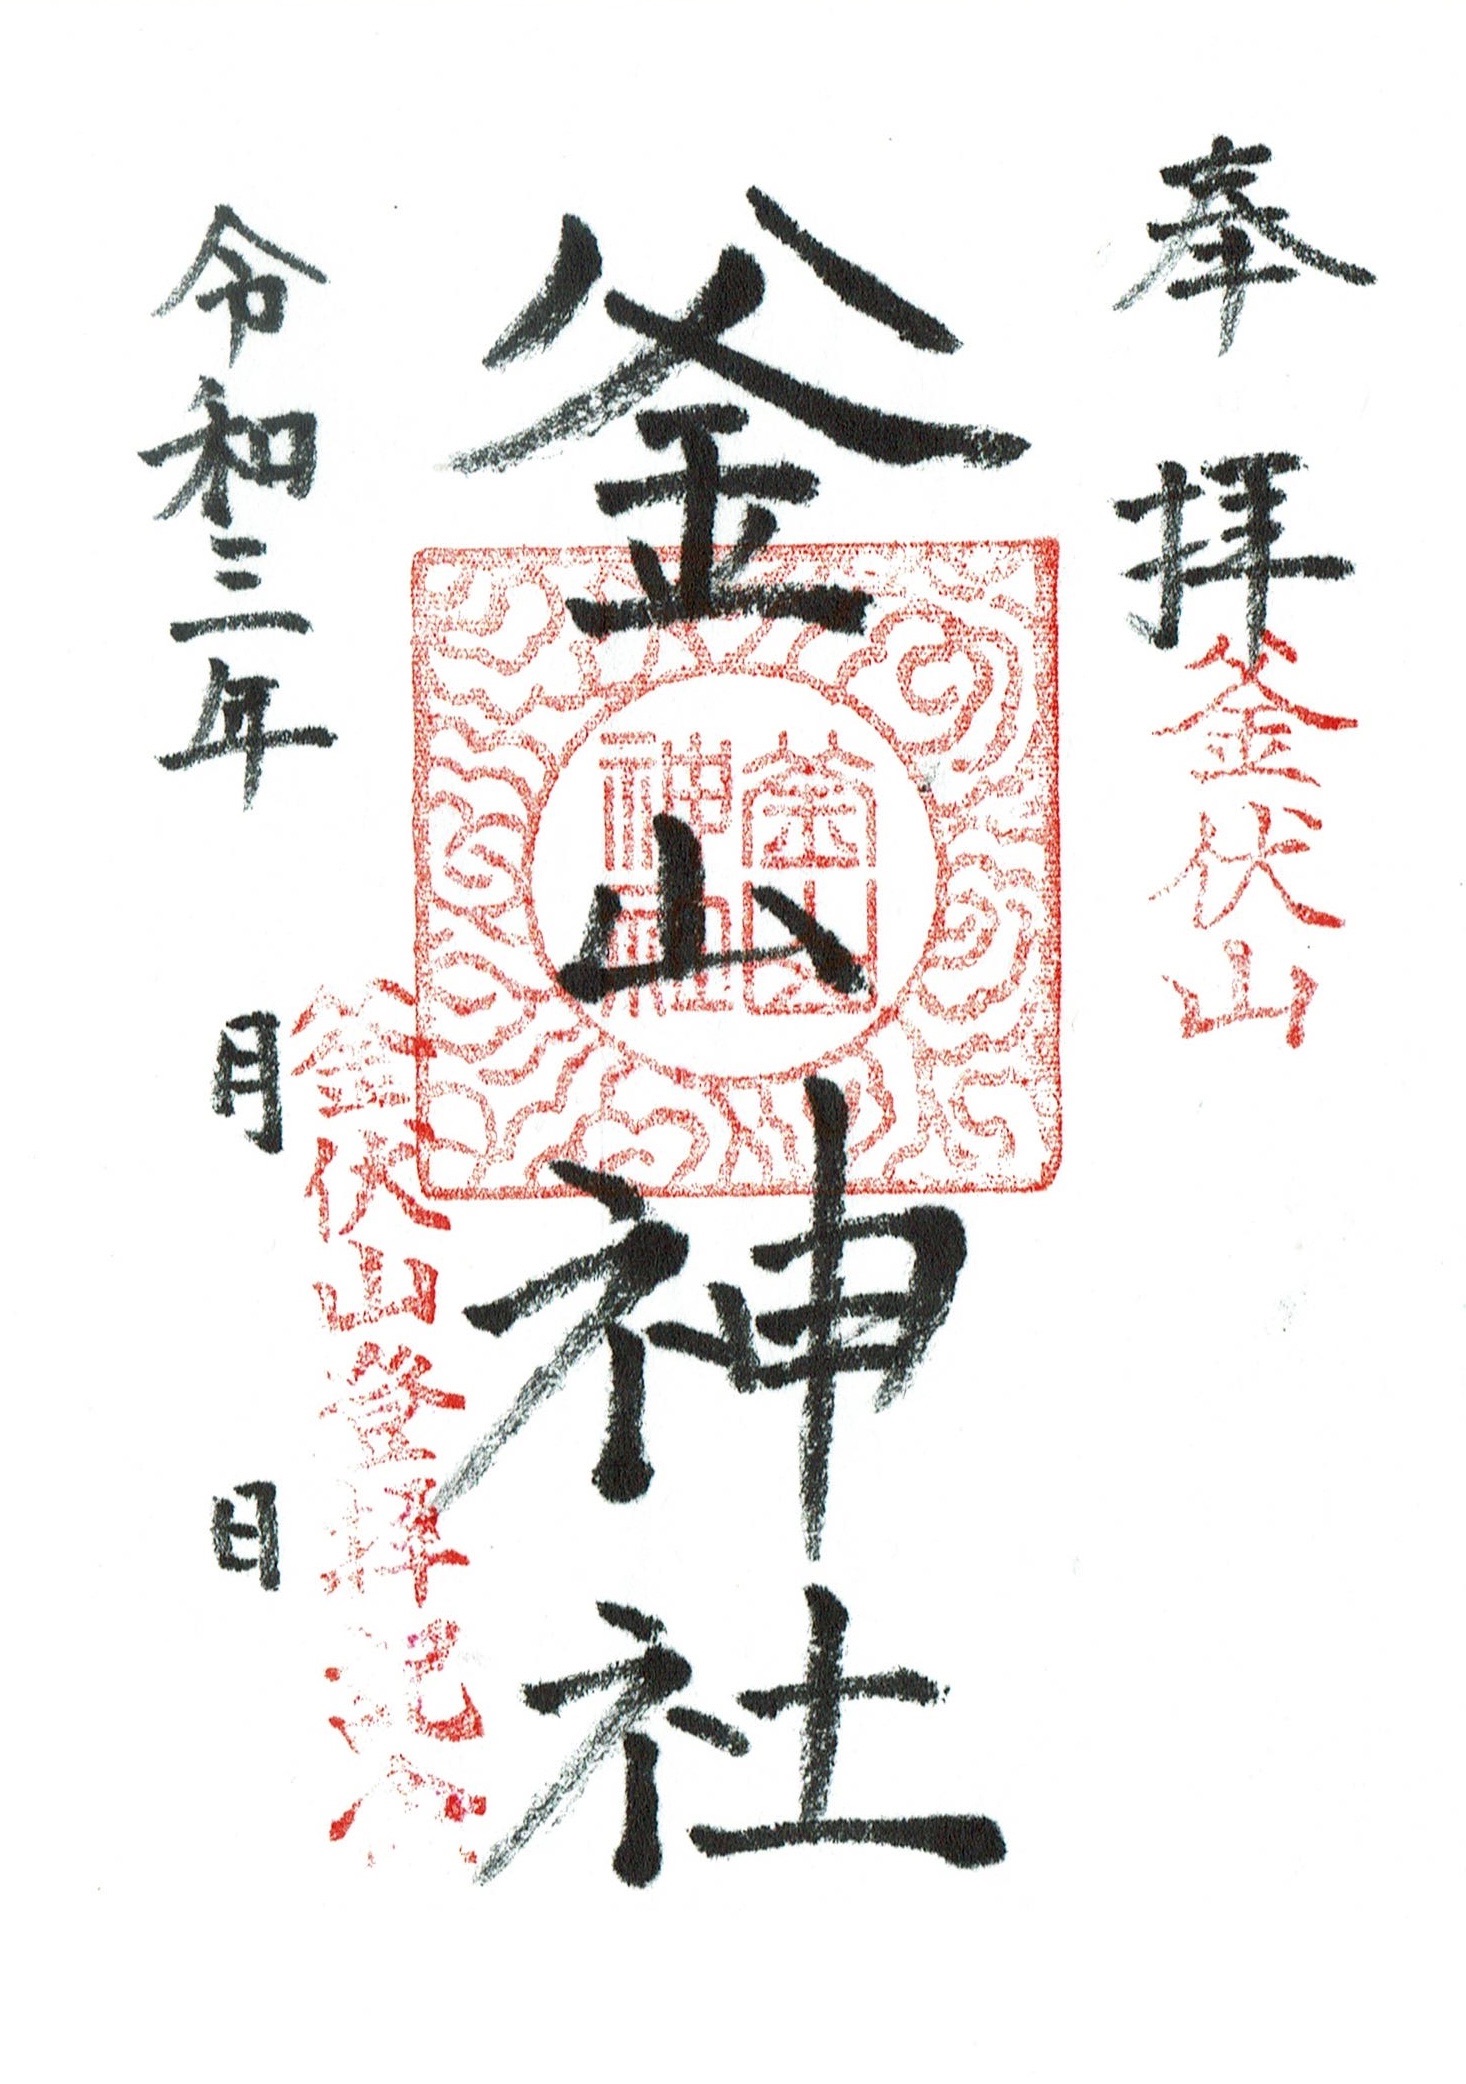 奉拝
釜伏山
釜山神社
釜山神社
釜伏山登拝記念
令和三年　月　日